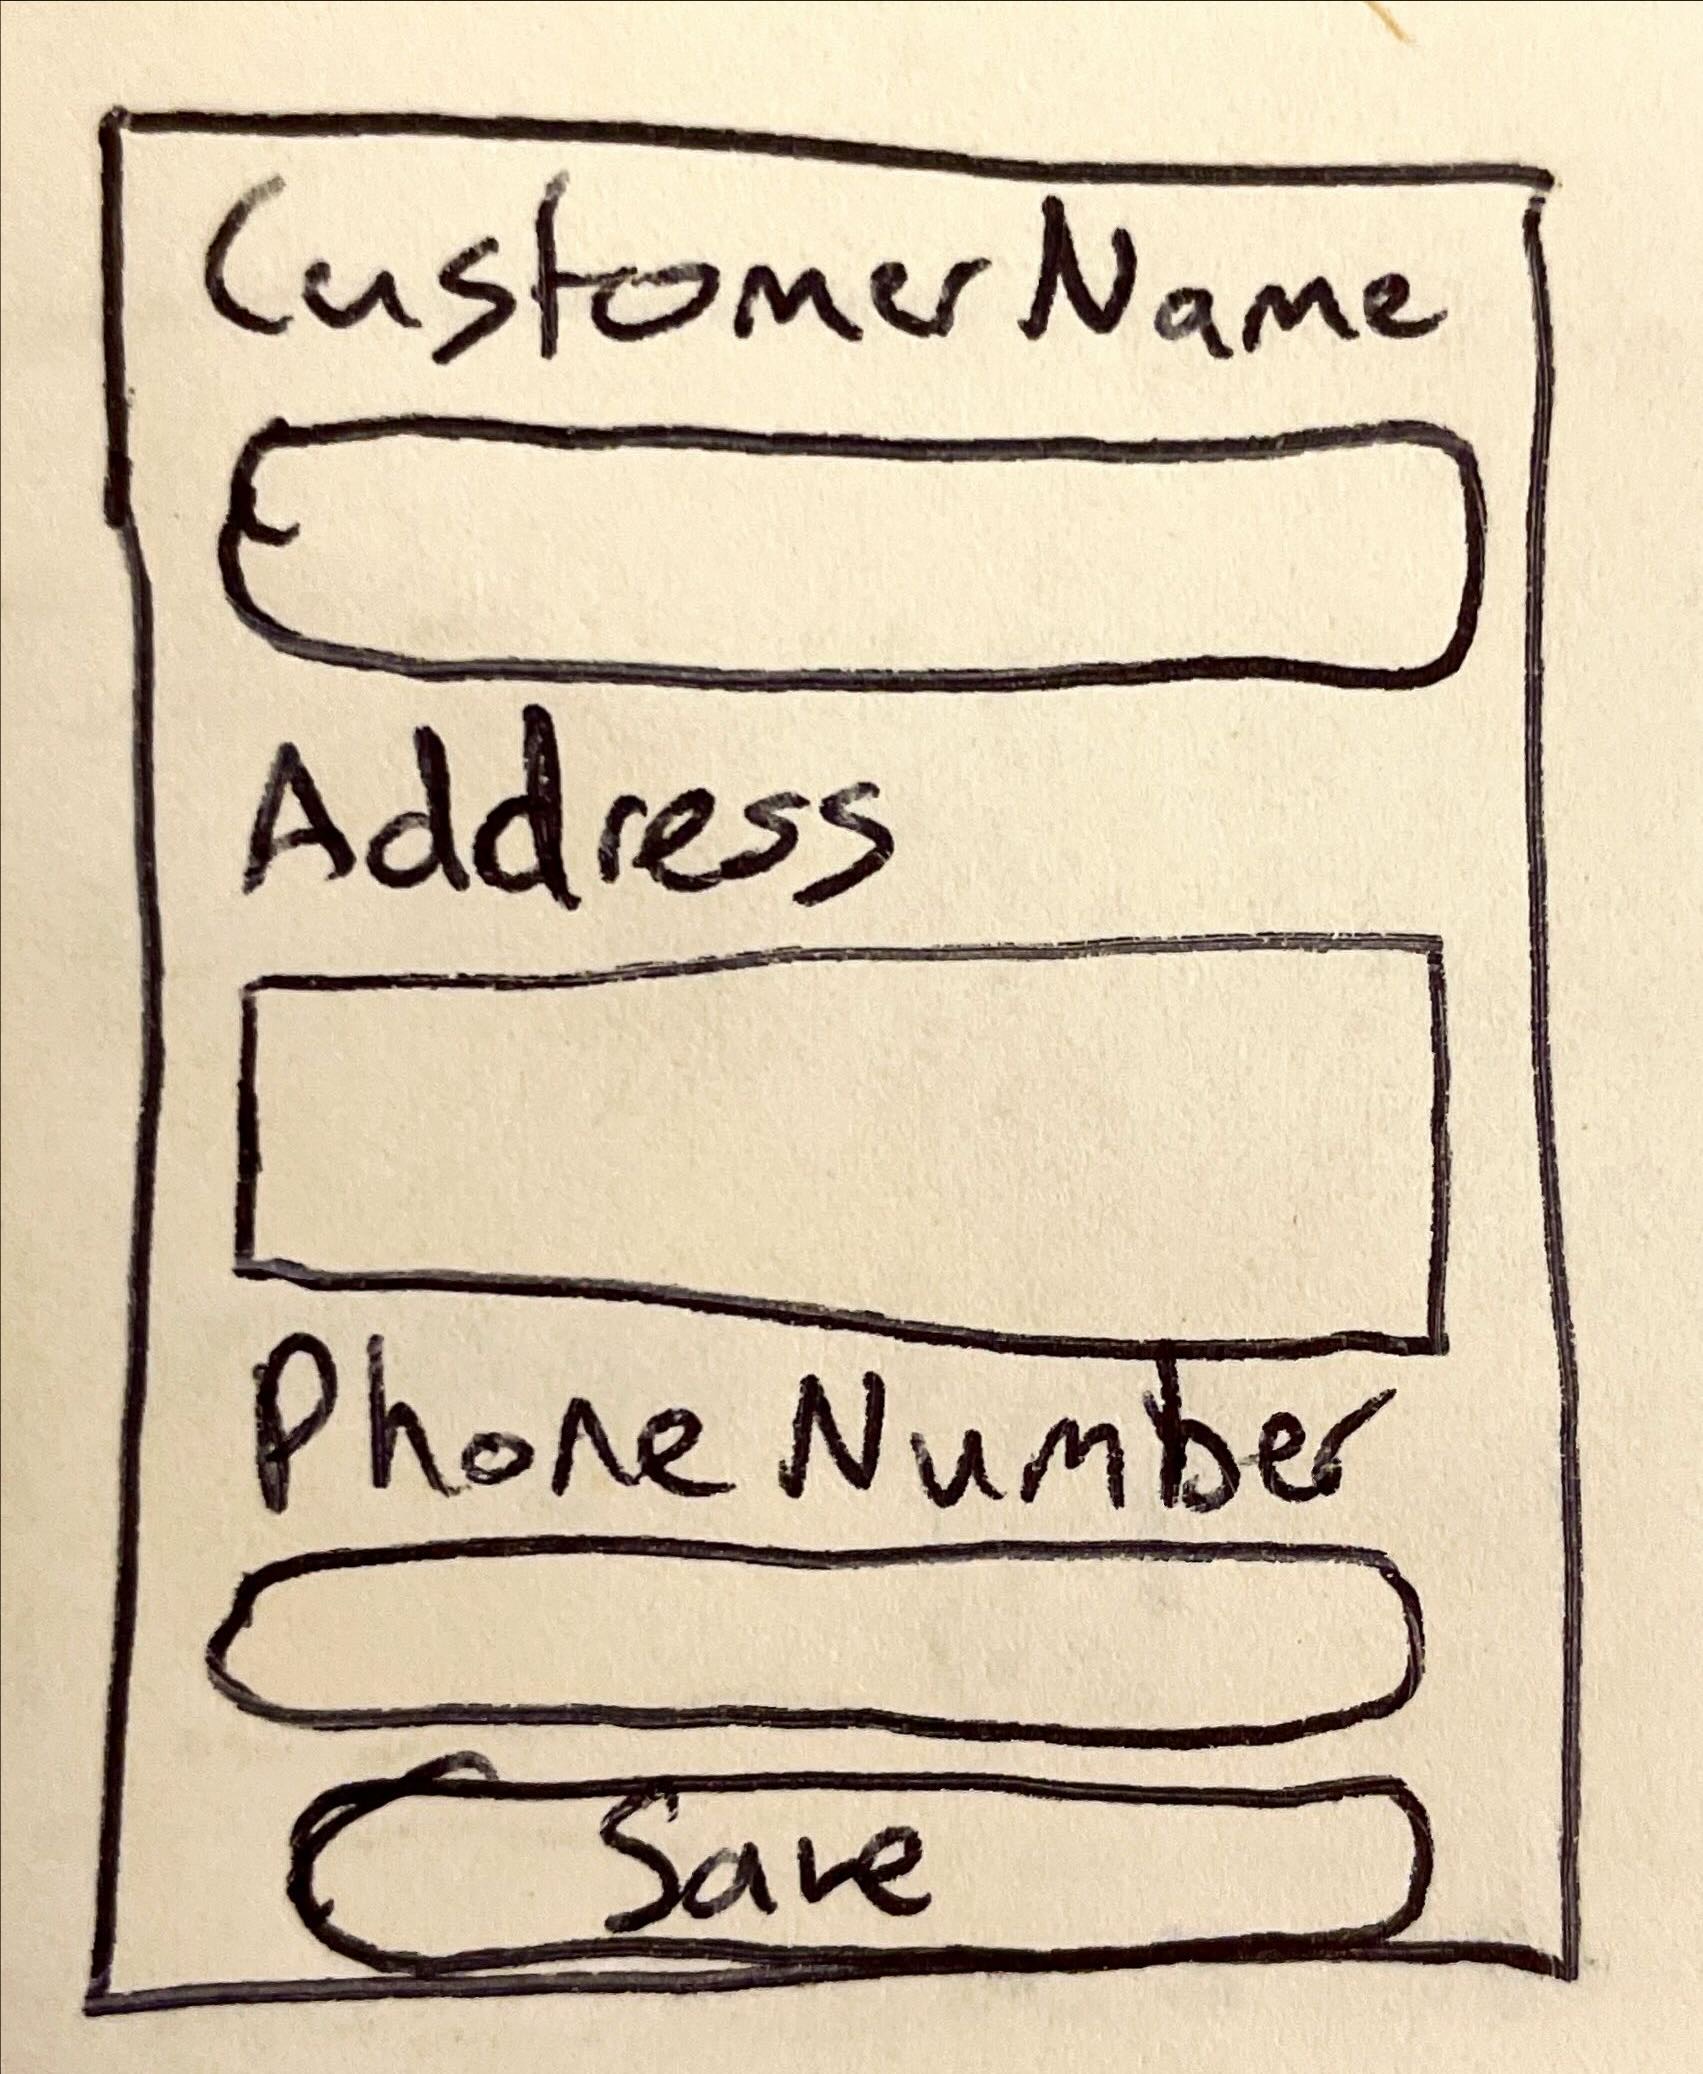 Customer Name
Address
Phone Number
Save